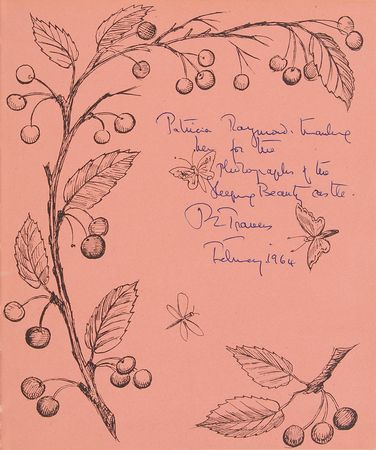 Patricia Raymond. thanking
her for the
photographs of the
Sleeping Beauty castle.
P L Travers
February 1964